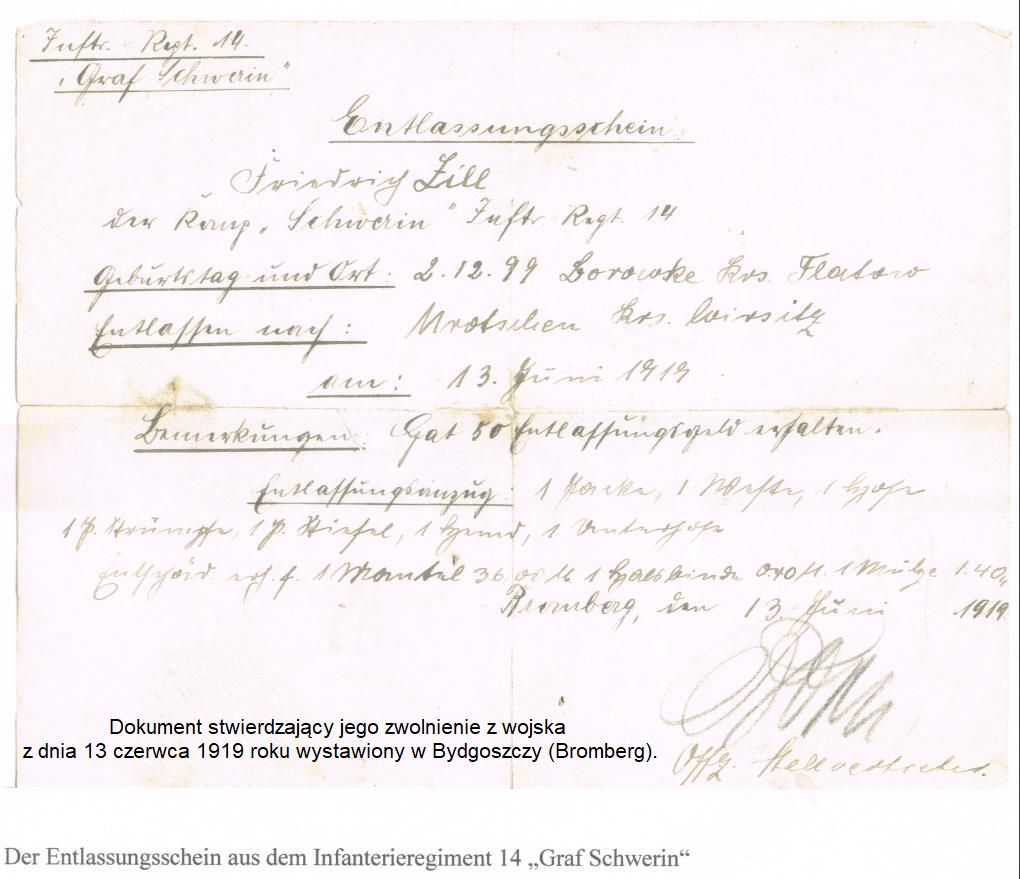 Inftr. Regt. 14.
"Graf Schwerin"
Entlassungsschein.
Friedrich Zill
der Komp. „Schwerin" Inftr. Regt. 14
Geburtstag und Ort: 2.12.99 Borowke Krs. Flatow
Entlassen nach: Mrotschen Krs. Wirsitz
am: 13. Juni 1919
Bemerkungen: Hat 50 Entlassungsgeld erhalten.
Entlassungsanzug: 1 Jacke, 1 Weste, 1 Hose
1 P. Strümpfe, 1 P. Stiefel, 1 Hemd, 1 Unterhose
Entschäd. erh. f. 1 Mantel 1 Halsbinde 1 Mütze 1.40
Bromberg, den 13. Juni 1919
Offz. Stellvertreter.
Dokument stwierdzający jego zwolnienie z wojska
z dnia 13 czerwca 1919 roku wystawiony w Bydgoszczy (Bromberg).
Der Entlassungsschein aus dem Infanterieregiment 14 „Graf Schwerin“